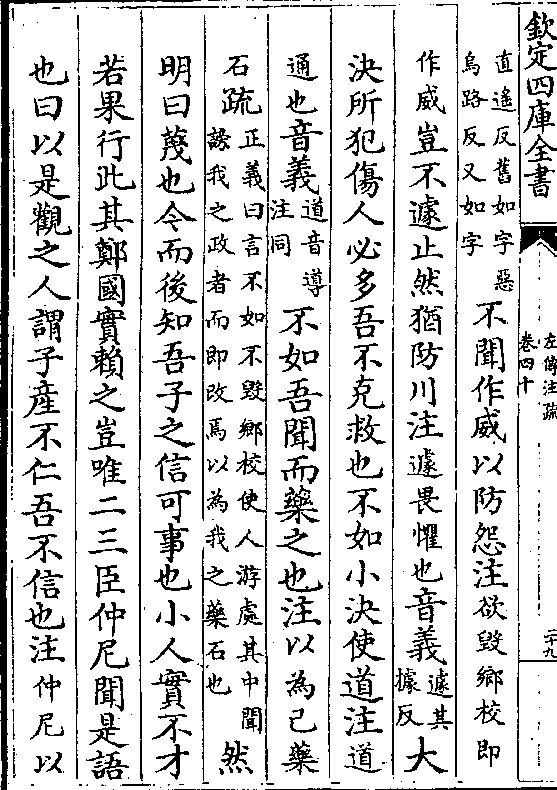 欽定四庫全書
左傳注疏
卷四十
二十九
直遙反舊如字惡
烏路反又如字
不聞作威以防怨注欲毀鄉校即
作威豈不遽止然猶防川注遽畏懼也音義遽其據反大
決所犯傷人必多吾不克救也不如小決使道注道
通也音義道音導注同不如吾聞而藥之也注以為己藥
石疏正義曰言不如不毀鄉校使人游處其中聞謗我之政者而即改焉以為我之藥石也然
明曰蔑也今而後知吾子之信可事也小人實不才
若果行此其鄭國實賴之豈唯二三臣仲尼聞是語
也曰以是觀之人謂子產不仁吾不信也注仲尼以